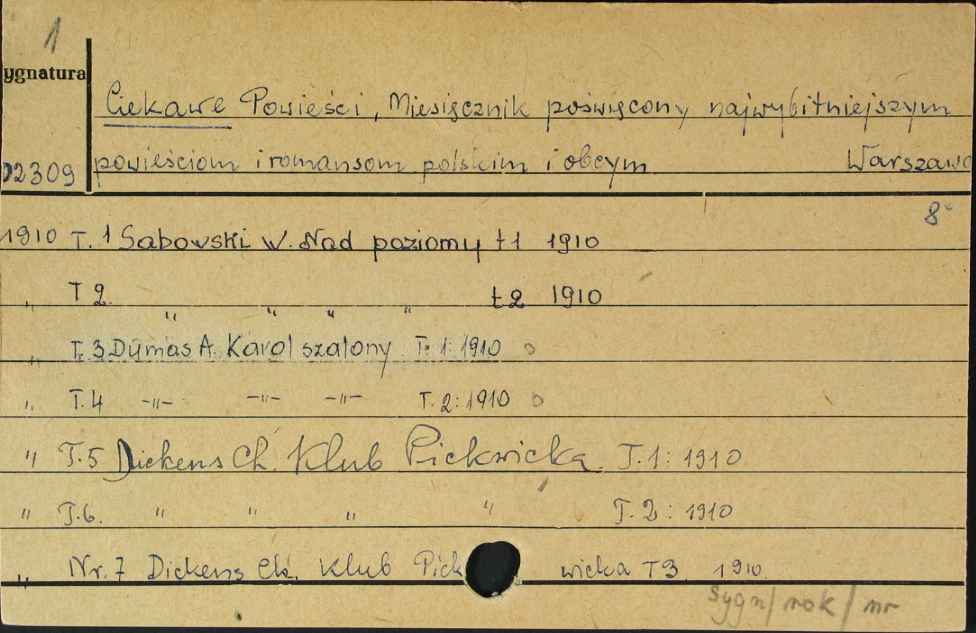 1
ygnatura
Ciekawe Powieści, Miesięcznik poświęcony najwybitniejszym
02309 powieściom i romansom polskim i obcym Warszawa
8°
1910 T. 1 Sabowski W. Nad poziomy t 1 1910
" T 2. " " " " t 2 1910
" T. 3 Dumas A. Karol szalony T. 1: 1910
" T. 4 -"- -"- -"- T. 2: 1910
" T. 5 Dickens Ch. Klub Pickwicka. T. 1: 1910
" T. 6. " " " " T. 2: 1910
" Nr. 7 Dickens Ch. Klub Pick wicka T 3 1910.
Sygn/ rok/ nr